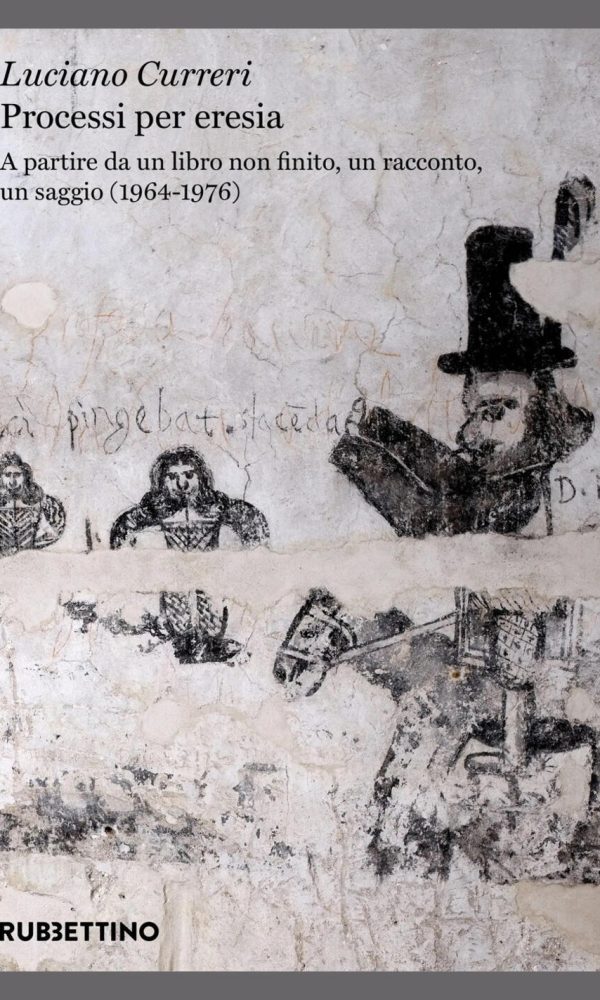 Luciano Curreri
Processi per eresia
A partire da un libro non finito, un racconto,
un saggio (1964-1976)
pingebat
D.
RUBBETTINO